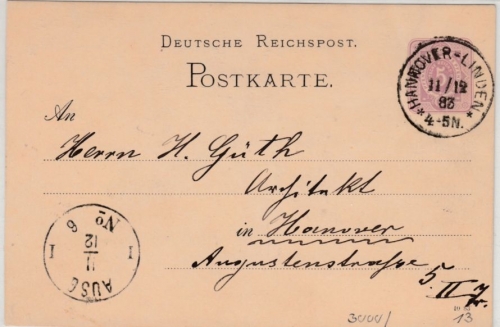 DEUTSCHE REICHSPOST.
POSTKARTE.
HANNOVER-LINDEN
11/12
83
4-5N.
5
An
Herrn H. Güth
Architekt
in Hanover
Augustenstraße
5. II
AUSG
11
12
I I
No 6
3000/
13